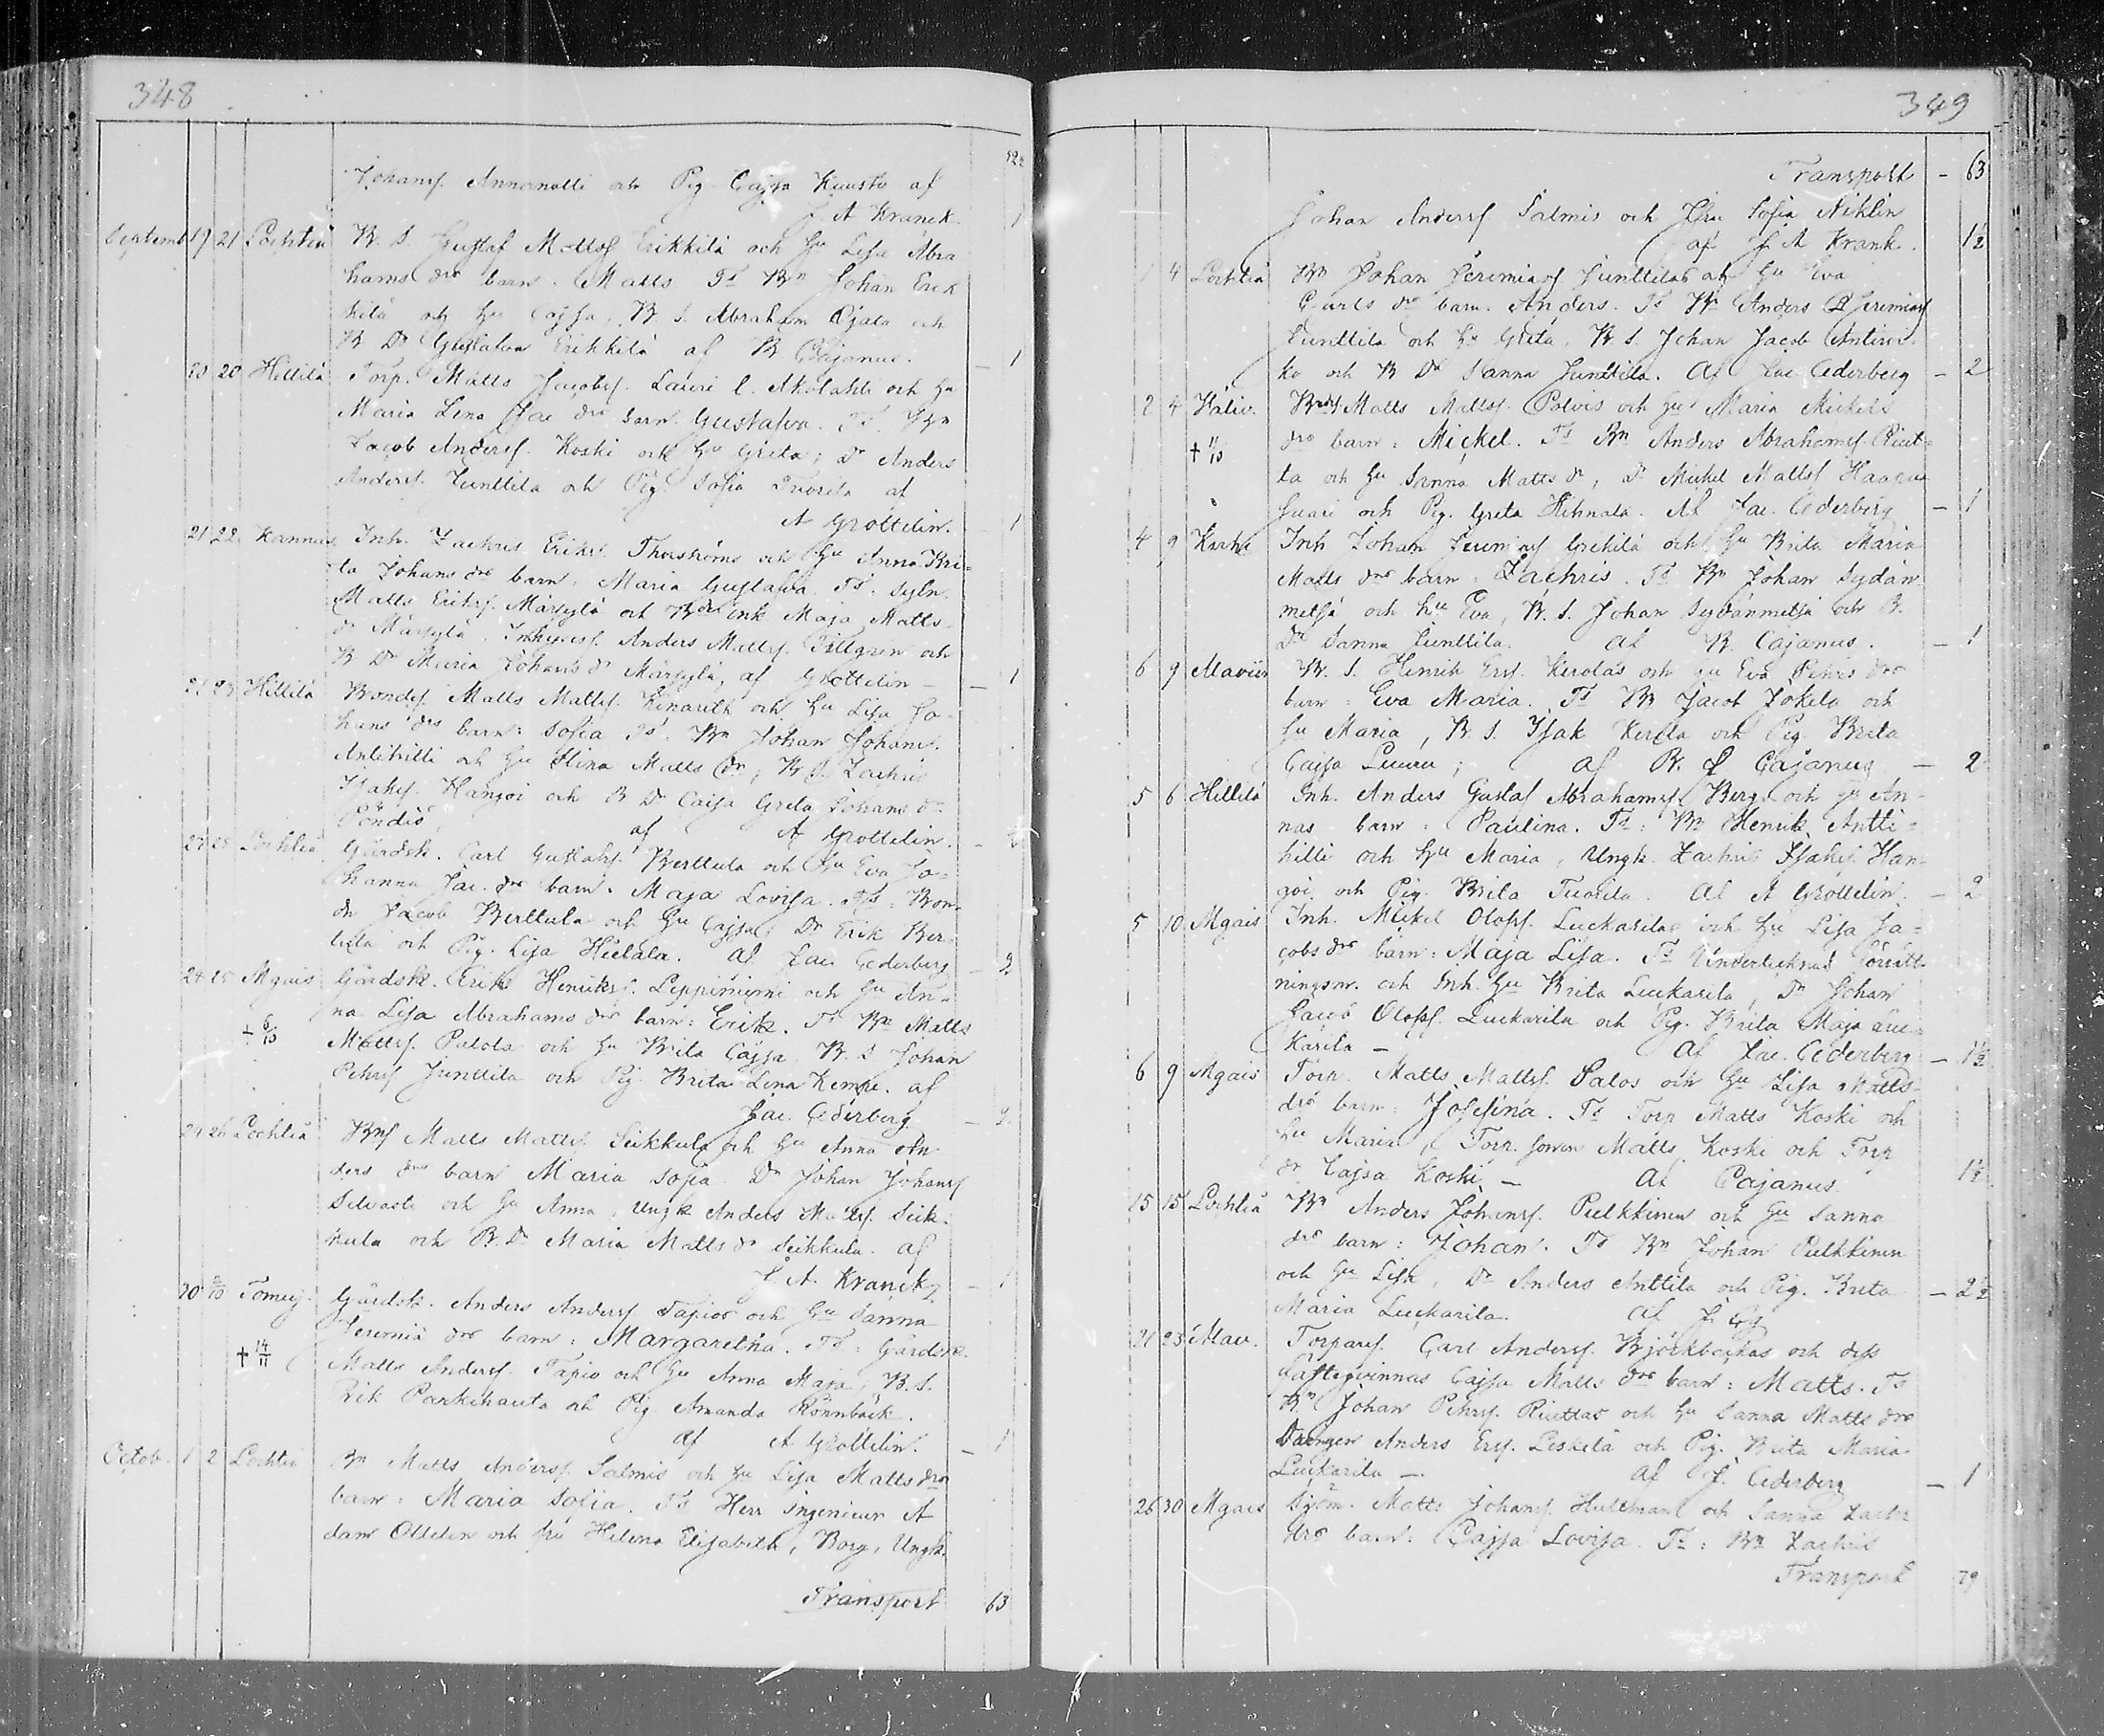 348
52½
Johansf. Annanolli och Pig. Cajsa Kuusto af
J A Kranck. 1
Septemb 19 21 Lochteå B. S. Gustaf Mattsf Erikkilä och Hu Lisa Abra
hams drs barn. Matts Ts Bn Johan Erik
kilä och hu Cajsa, B. S. Abraham Ojala och
B Dr Gustafva Erikkilä af B. Cajanus. — 1
20 20 Hillilä Torp. Matts Jacobsf. Lauri l. Akolahti och Hu
Maria Lena Jac drs barn. Gustafva. Ts. Bn
Jacob Andersf. Koski och Hu Greta; Dr Anders
Andersf. Junttila och Pig. Sofia Tuorila af
A Grottelin. — 1
21 22 Kannus Inh. Zachris Eriks. Thorströms och Hu Anna Bri-
ta Johans drs barn. Maria Gustafva. Ts. Sytn.
Matts Eriksf. Märsylä och Bde enk Maja Matts
dr Märsylä. Inhysesf. Anders Mattsf. Tillgren och
B Dr Maria Johans dr Märsylä, af Grottelin — 1
21 23 Hillilä Bondes. Matts Mattsf. Kinareth och Hu Lisa Jo-
hans drs barn: Sofia Ts. Bn Johan Johansf.
Anttihilli och Hu Stina Matts dr, B S. Zachris
Isaksf. Hangoi och B Dr Caisa Greta Johans dr
Pöndiö af A Grottelin. —
Lochteå Gårdsk. Carl Gustafsf. Berttula och Hu Eva Jo-
hanna Jac. drs barn. Maja Lovisa. Ts: Bon-
dn Jacob Berttula och Hu Cajsa, Dr Erik Ber-
tula och Pig. Lisa Hietala. Af Jac Cederberg — 2
24 25 Mgais Gårdsk. Erik Henriksf. Leppiniemi och Hu An-
na Lisa Abrahams drs barn: Erik. Ts Bn Matts
+ 6/10 Mattsf. Palola och Hu Brita Cajsa. B. S Johan
Pehrsf Junttila och Pig. Brita Lena Kempe. af
Jac. Cederberg — 2
24 26 Lochteå Bns Matts Mattsf. Seikkula och Hu Anna An
ders drs barn Maria Sofia. Dr Johan Johansf
Silvasti och Hu Anna, Ungk Anders Mattsf. Seik-
kula och B. Dr Maria Matts dr Seikkula. af
J A. Kranck — 1
30 2/10 Tomuj. Gårdsk. Anders Andersf Tapios och Hu Sanna
Jeremiä drs barn: Margaretha. Ts: Gårdsk.
+ 14/11 Matts Andersf. Tapio och Hu Anna Maja, B. S.
Erik Parkihauta och Pig. Amanda Rönnbäck.
af A Grottelin. — 1
Octob. 1 2 Lochteå Bn Matts Andersf. Salmis och Hu Lisa Matts drs
barn: Maria Sofia. Ts Herr Ingenieur A
dam Ottelin och fru Helena Elisabeth, Borg, Ungk.
Transport 63
349
Transport — 63
Johan Andersf Salmis och Jfru Sofia Nihlin
af J A Krank. 1½
1 4 Lochteå Bn Johan Jeremiasf Junttilas och Hu Eva
Carls drs barn. Anders. Ts Bn Anders Jeremiasf
Junttila och Hu Greta, B S. Johan Jacob Antiros-
ko och B Dr Sanna Junttila. Af Jac Cederberg — 2
2 4 Kaliv. Bndsf Matts Mattsf. Polvis och Hu Maria Mickels
+ 11/10 drs barn: Mickel. Ts Bn Anders Abrahamsf. Riut-
ta och Hu Sanna Matts dr, Dr Mickel Mattsf Haapa
saari och Pig. Greta Hihnala. Af Jac. Cederberg — 1
4 9 Inh Johan Jeremiasf Grekilä och Hu Brita Maria
Matts drs barn: Zachris. Ts Bn Johan Sydän
metsä och hu Eva, B. S. Johan Sydänmetsä och B.
Dr Sanna Junttila. af B. Cajanus. — 1
6 9 Maviir B. S. Henrik Ersf. Kerolas och Hu Eva Pehrs drs
barn: Eva Maria. Ts Bn Jacob Jokela och
Hu Maria, B. S. Isak Kerola och Pig. Brita
Cajsa Luuru; af B. Cajanus — 2
5 6 Hillilä Inh. Anders Gustaf Abrahamsf. Berg och Hu An-
nas barn: Paulina. Ts: Bn Henrik Antti-
hilli och Hu Maria, Ungk. Zachris Isaksf. Han-
goi och Pig. Brita Tuorila. Af A Grottelin. — 2
5 10 Mgais Inh. Mickel Olofsf. Luckarilas och Hu Lisa Ja-
cobs drs barn: Maja Lisa. Ts Undertecknad Förrätt-
ningsm. och Inh. Hu Brita Luckarila, Dr Johan
Jacob Olofsf. Luckarila och Pig. Brita Maja Luc-
karila — Af Jac. Cederberg — 1½
6 9 Mgais Torp. Matts Mattsf. Salos och Hu Lisa Matts-
drs barn: Josefina. Ts Torp Matts Koski och
Hu Maria, Torp. sonen Matts Koski och Torp
dr Cajsa Koski — Af Cajanus. 1½
15 15 Lochteå Bn Anders Johansf. Pulkkinen och Hu Sanna
drs barn: Johan. Ts Bn Johan Pulkkinen
och Hu Lisa, Dr Anders Anttila och Pig. Brita — 2½
Maria Luckarila. Af J. Cbg
21 23 Mav. Torparef. Carl Andersf. Björkbackas och dess
Fästeqvinnas Cajsa Matts drs barn: Matts. Ts
Bn Johan Pehrsf. Riuttas och Hu Sanna Matts drs
Drängen Anders Ersf. Leskelä och Pig. Brita Maria
Luckarila — af J. Cederberg — 1
26 30 Mgais Sjöm. Matts Johansf. Hultman och Sanna Zachr
drs barn: Cajsa Lovisa. Ts: Bn Zachris
Transport 79